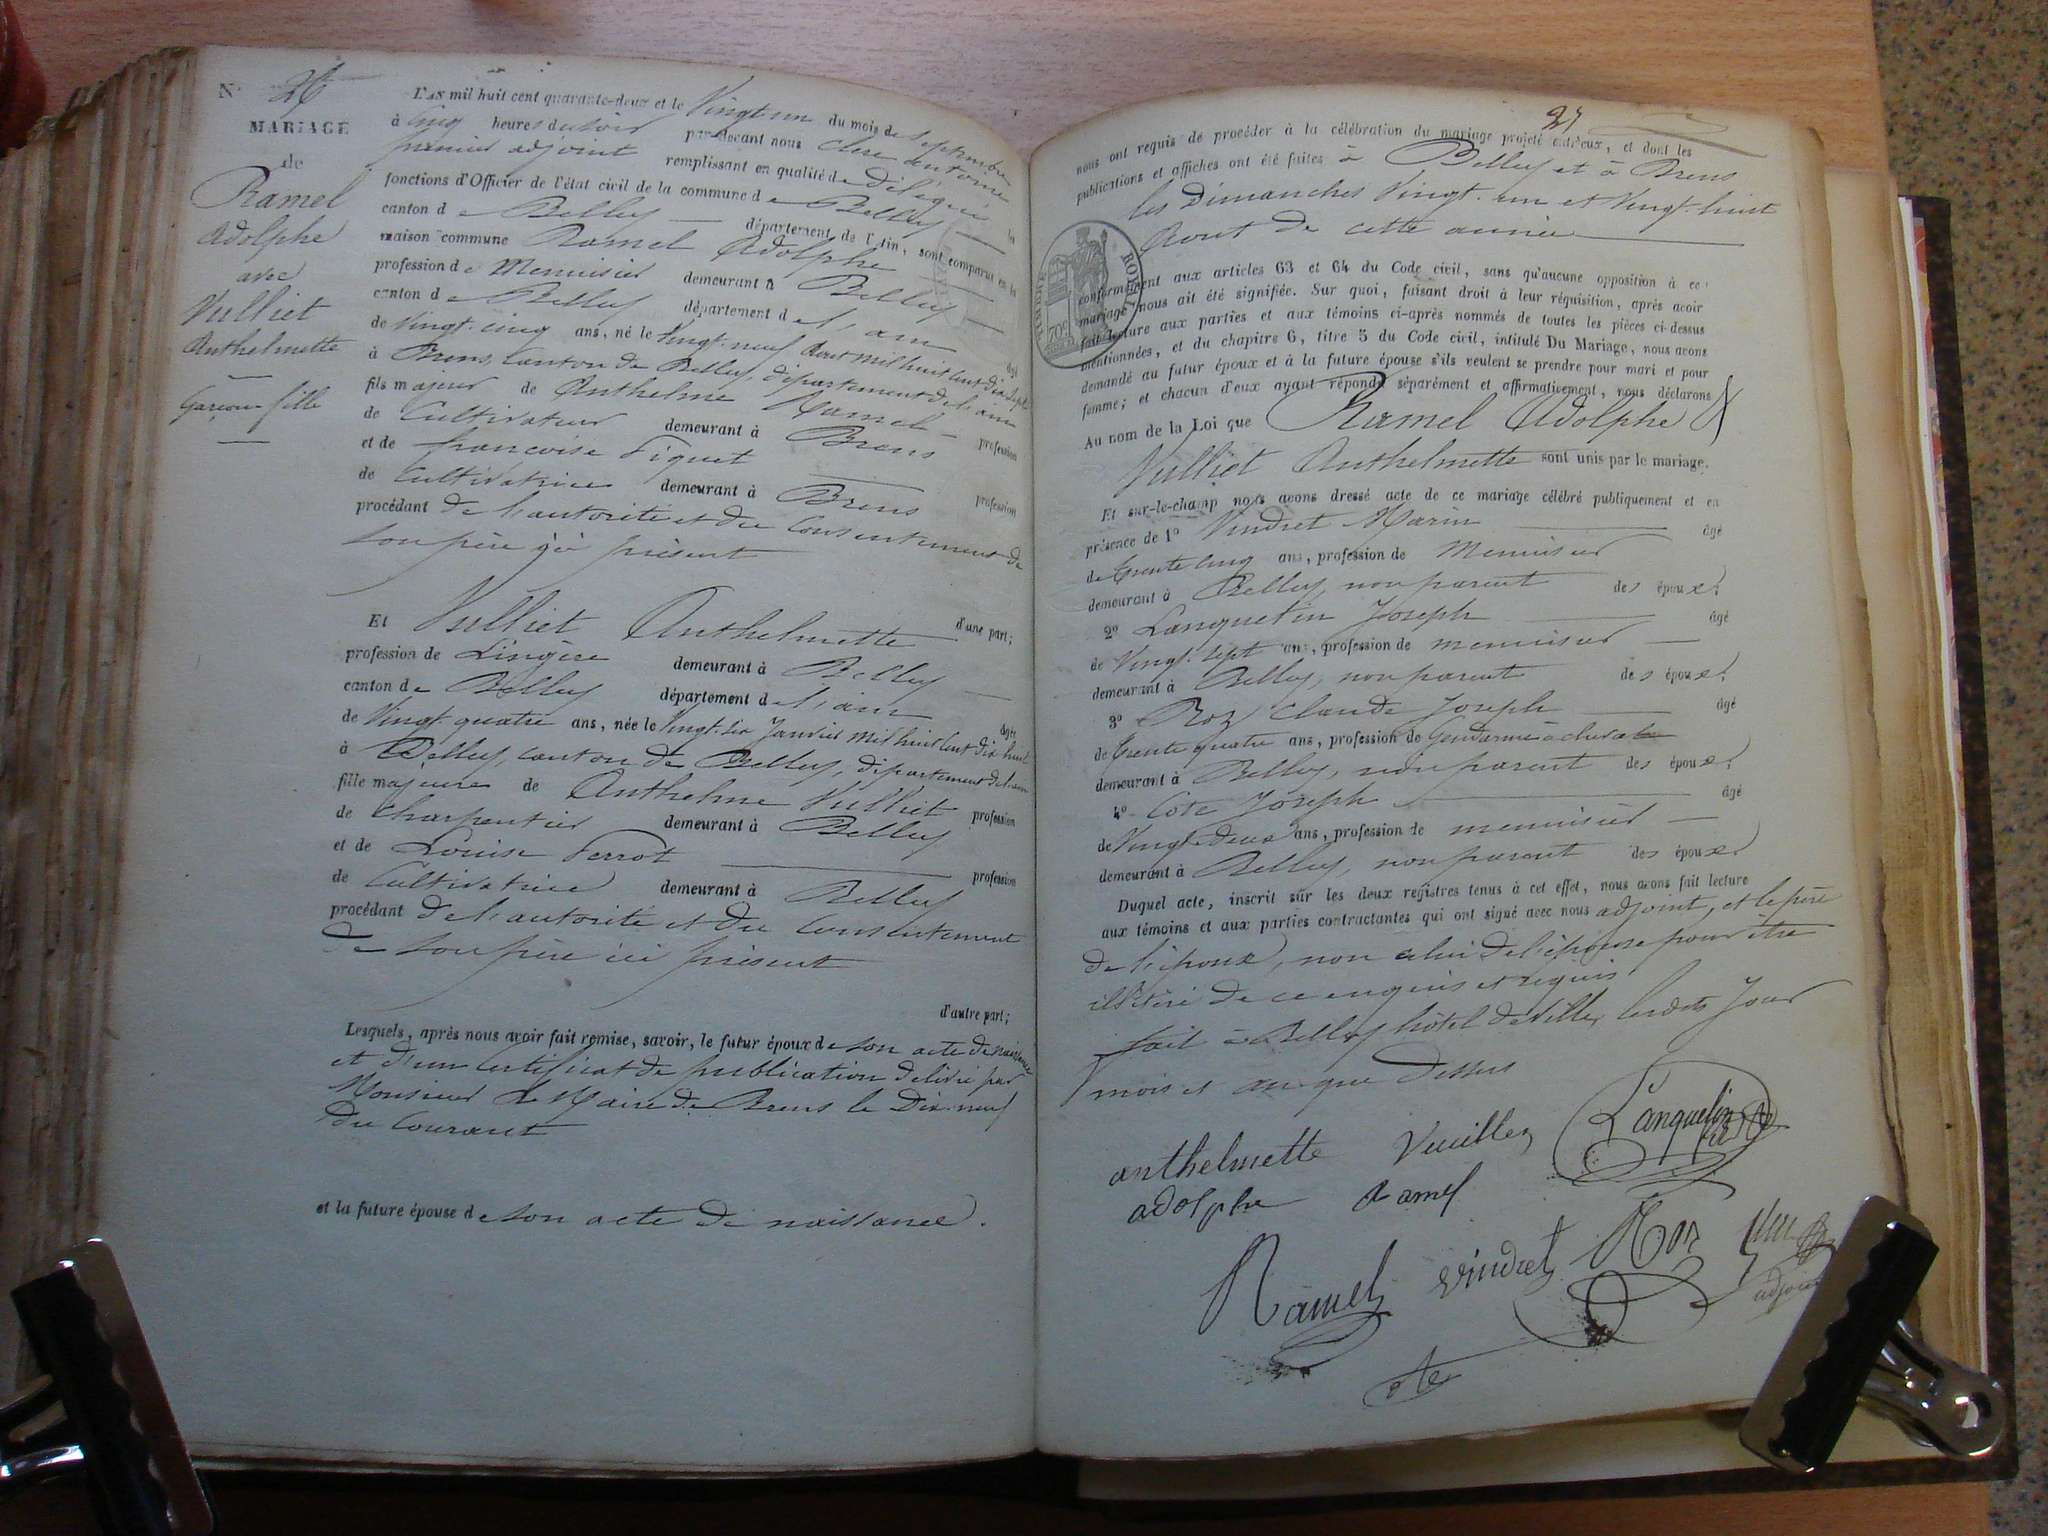 N° 26
MARIAGE
de
Ramel
Adolphe
avec
Vulliet
Anthelmette
Garçon fille
L'AN mil huit cent quarante-deux et le Vingt un du mois de septembre
à cinq heures du soir par-devant nous antoine
premier adjoint remplissant en qualité de Délégué les
fonctions d'Officier de l'état civil de la commune de Belley
canton de Belley département de l'Ain, sont comparus en la
maison commune Ramel Adolphe
profession de Menuisier demeurant à Belley
canton de Belley département de l'ain âgé
de Vingt-cinq ans, né le Vingt-neuf Aout mil huit cent dix sept
à Brens, canton de Belley, département de l'ain
fils majeur de Anthelme Ramel profession
de Cultivateur demeurant à Brens
et de françoise Piquet profession
de Cultivatrice demeurant à Brens
procédant de l'autorité et du Consentement de
son père ici présent
d'une part;
Et Vulliet Anthelmette
profession de Lingère demeurant à Belley
canton de Belley département de l'ain âgée
de Vingt-quatre ans, née le Vingt-six Janvier mil huit cent dix huit
à Belley, canton de Belley, département de l'ain
fille majeure de Anthelme Vulliet profession
de Charpentier demeurant à Belley
et de Louise Perrot profession
de Cultivatrice demeurant à Belley
procédant de l'autorité et du Consentement
De son père ici présent
d'autre part;
Lesquels, après nous avoir fait remise, savoir, le futur époux de son acte de naissance
et d'un Certificat de publication délivré par
Monsieur le Maire de Brens le Dix-neuf
du Courant
et la future épouse de son acte de naissance.
27
nous ont requis de procéder à la célébration du mariage projeté entr'eux, et dont les
publications et affiches ont été faites à Belley et à Brens
les Dimanches Vingt-un et Vingt-huit
Aout de cette année
TIMBRE ROYAL
70c
conformément aux articles 63 et 64 du Code civil, sans qu'aucune opposition à ce
mariage nous ait été signifiée. Sur quoi, faisant droit à leur réquisition, après avoir
fait lecture aux parties et aux témoins ci-après nommés de toutes les pièces ci-dessus
mentionnées, et du chapitre 6, titre 5 du Code civil, intitulé Du Mariage, nous avons
demandé au futur époux et à la future épouse s'ils veulent se prendre pour mari et pour
femme; et chacun d'eux ayant répondu séparément et affirmativement, nous déclarons
Au nom de la Loi que Ramel Adolphe &
Vulliet Anthelmette sont unis par le mariage.
Et sur-le-champ nous avons dressé acte de ce mariage célébré publiquement et en
présence de 1° Vindret Marin âgé
de trente cinq ans, profession de Menuisier
demeurant à Belley, non parent des époux.
2° Lanquetin Joseph âgé
de Vingt-sept ans, profession de menuisier
demeurant à Belley, non parent des époux.
3° Roz Claude Joseph âgé
de trente quatre ans, profession de Gendarme à cheval
demeurant à Belley, non parent des époux.
4° Cote Joseph âgé
de Vingt-deux ans, profession de menuisier
demeurant à Belley, non parent des époux
Duquel acte, inscrit sur les deux registres tenus à cet effet, nous avons fait lecture
aux témoins et aux parties contractantes qui ont signé avec nous adjoint, et le père
de l'époux, non celui de l'épouse pour être
illitéré de ce enquis et requis
fait à Belley hôtel de Ville, lesdits Jour
mois et an que dessus
anthelmette Veuillez Lanquetin
adolphe Ramel
Ramel vindret Roz
adjoint